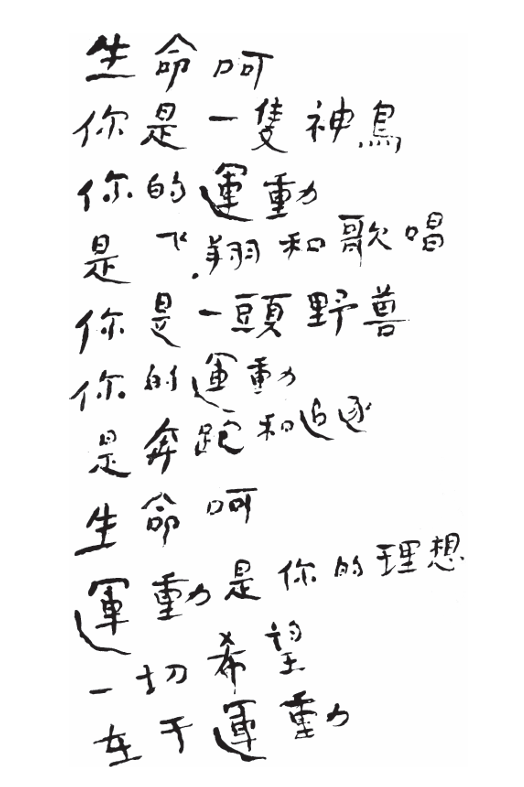 生命呵
你是一隻神鳥
你的運動
是飞翔和歌唱
你是一頭野兽
你的運動
是奔跑和追逐
生命呵
運動是你的理想
一切希望
在于運動